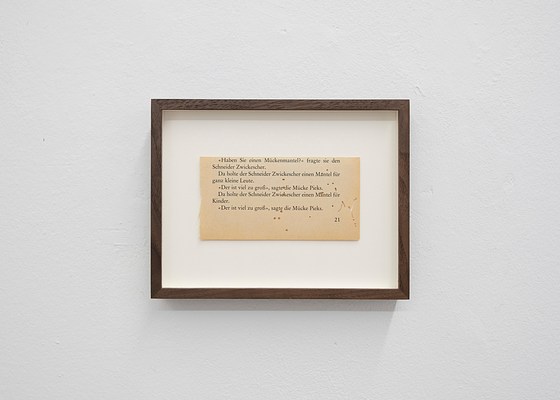 »Haben Sie einen Mückenmantel?« fragte sie den
Schneider Zwickescher.
Da holte der Schneider Zwickescher einen Mantel für
ganz kleine Leute.
»Der ist viel zu groß«, sagte die Mücke Pieks.
Da holte der Schneider Zwickescher einen Mantel für
Kinder.
»Der ist viel zu groß«, sagte die Mücke Pieks.
21